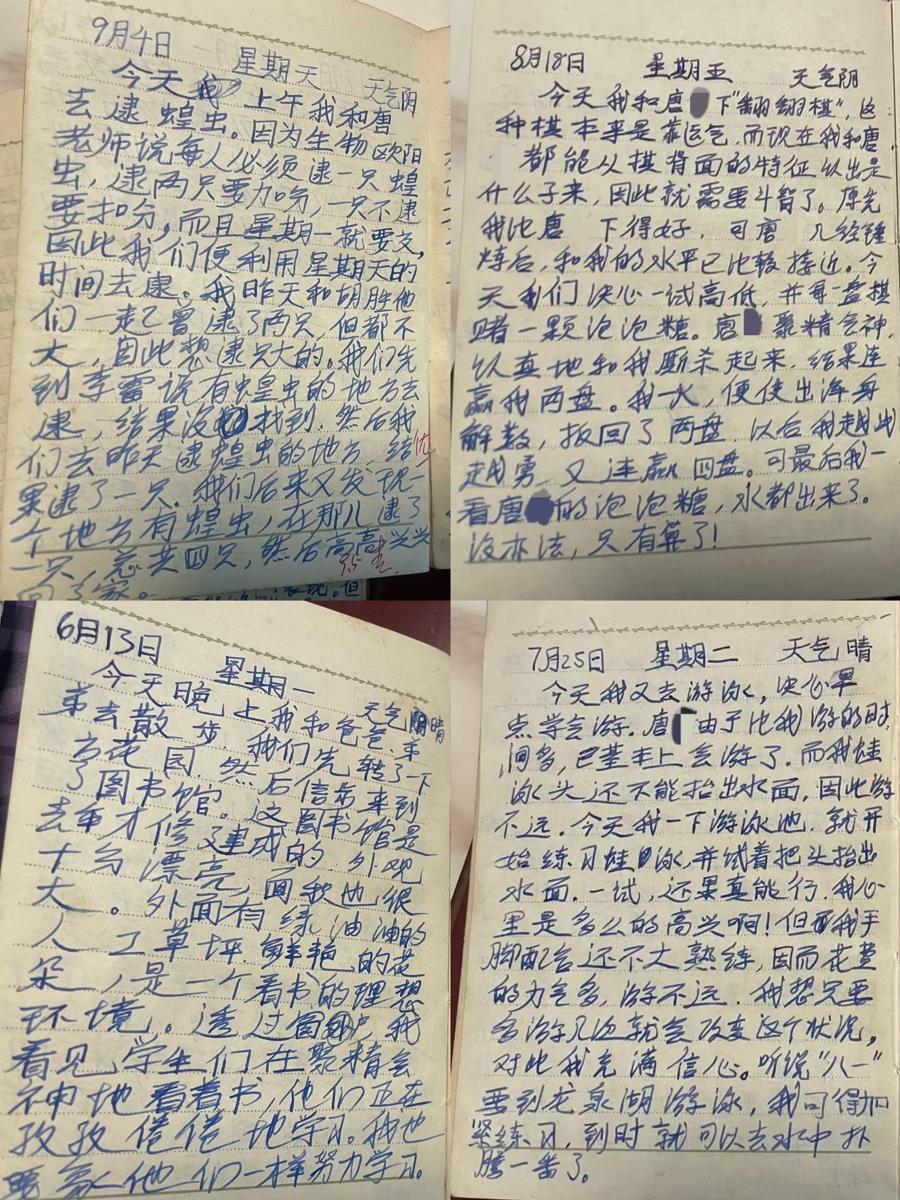 9月4日 星期天 天气阴
今天 上午我和唐
去逮蝗虫。因为生物欧阳
老师说每人必须逮一只蝗
虫,逮两只要加分,一只不逮
要扣分。而且星期一就要交,
因此我们便利用星期天的
时间去逮。我昨天和胡胜他
们一起已曾逮了两只,但都不
大,因此想逮只大的。我们先
到李雷说有蝗虫的地方去
逮,结果没 找到。然后我
们去昨天逮蝗虫的地方,结
果逮了一只。我们后来又发现一
个地方有蝗虫,在那儿逮了
一只,总共四只,然后高高兴兴
回了家。
优
95
8月18日 星期五 天气阴
今天我和唐 下“翻翻棋”,这
种棋本来是靠运气,而现在我和唐
都能从棋背面的特征认出是
什么子来,因此就需要斗智了。原先
我比唐 下得好,可唐 几经锤
炼后,和我的水平已比较接近。今
天我们决心一试高低,并每一盘棋
赌一颗泡泡糖。唐 聚精会神,
认真地和我厮杀起来,结果连
赢我两盘。我一火,便使出浑身
解数,扳回了两盘。以后我越战
越勇,又连赢四盘。可最后我一
看唐 的泡泡糖,水都出来了。
没办法,只有算了!
6月13日 星期一 天气 晴
今天晚上我和爸爸、
弟去散步。我们先转了一下
花园,然后信步来到
了图书馆。这图书馆是
去年才修建成的,外观
十分漂亮,面积也很
大。外面有绿油油的
人工草坪,鲜艳的花
朵,是一个看书的理想
环境。透过窗户,我
看见学生们在聚精会
神地看着书,他们正在
孜孜倦倦地学习。我也
要象他们一样努力学习。
7月25日 星期二 天气晴
今天我又去游泳,决心早
点学会游。唐 由于比我游的时
间多,已基本上会游了。而我蛙
泳头还不能抬出水面,因此游
不远。今天我一下游泳池,就开
始练习蛙泳,并试着把头抬出
水面。一试,还果真能行。我心
里是多么的高兴啊!但我手
脚配合还不大熟练,因而花费
的力气多,游不远。我想只要
多游几次就会改变这个状况,
对此我充满信心。听说“八一”
要到龙泉湖游泳,我可得加
紧练习,到时就可以去水中扑
腾一番了。